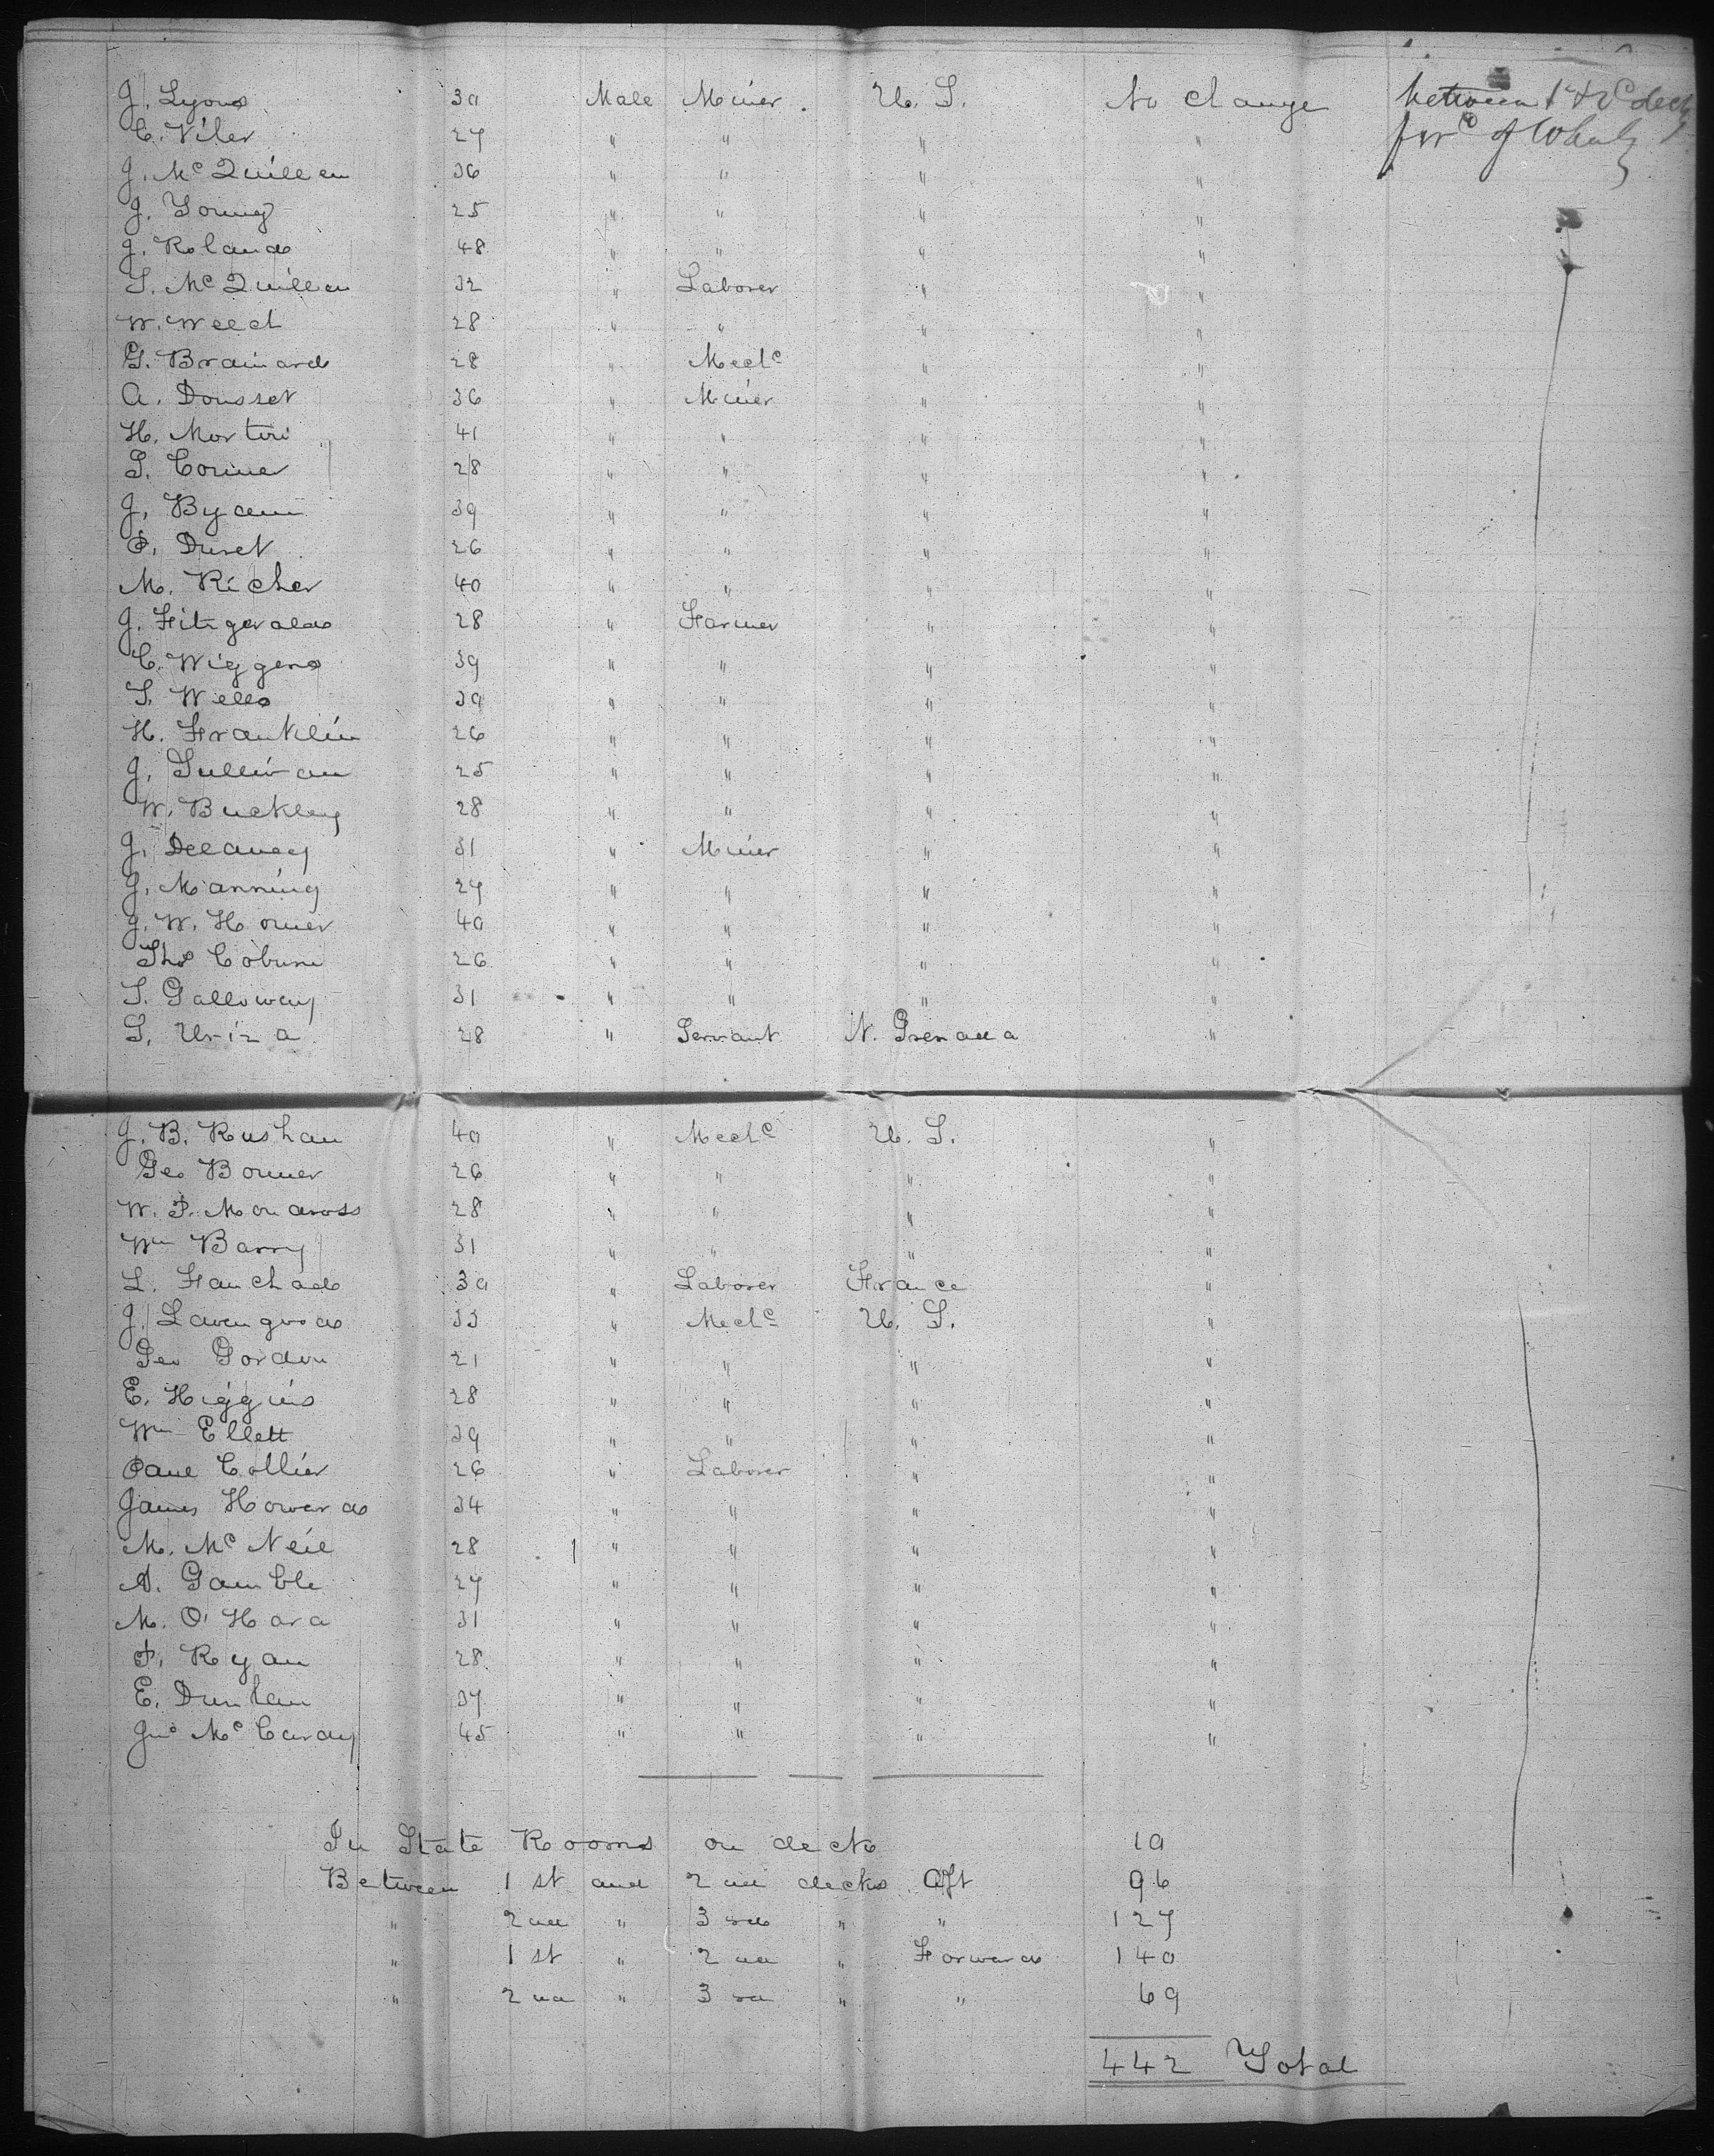 J. Lyons 30 Male Miner. U. S. No Change between 1st & 2d deck
C. Viler 27 " " " " forwd of Whales
J. McQuillan 36 " " " "
J. Young 25 " " " "
J. Roland 48 " " " "
S. McQuillan 32 " Laborer " "
W. Welch 28 " " " "
G. Brainard 28 " Mechc " "
A. Dousset 36 " Miner " "
H. Morton 41 " " " "
S. Corner 28 " " " "
J. Byam 39 " " " "
P. Duret 26 " " " "
M. Richer 40 " " " "
J. Fitzgerald 28 " Farmer " "
C. Wiggens 39 " " " "
S. Wells 39 " " " "
H. Franklin 26 " " " "
J. Sullivan 25 " " " "
W. Buckley 28 " " " "
J. Delaney 31 " Miner " "
J. Manning 27 " " " "
J. W. Horner 40 " " " "
Thos Coburn 26 " " " "
S. Galloway 31 " " " "
S. Uriza 28 " Servant N. Grenada "
J. B. Rushau 40 " Mechc U. S. "
Geo Bonner 26 " " " "
W. P. 28 " " " "
Wm Barry 31 " " " "
L. Fauchad 30 " Laborer France "
J. Lavengood 33 " Mechc U. S. "
Geo Gordon 21 " " " "
E. Higgins 28 " " " "
Wm Ellett 39 " " " "
Paul Collier 26 " Laborer " "
James Howard 34 " " " "
M. McNeil 28 " " " "
A. Gamble 27 " " " "
M. O'Hara 31 " " " "
P. Ryan 28 " " " "
E. Dunlan 37 " " " "
Jno McCurdy 45 " " " "
In State Rooms on deck 10
Between 1st and 2nd decks Aft 96
" 2nd " 3rd " " 127
" 1st " 2nd " Forward 140
" 2nd " 3rd " " 69
442 Total